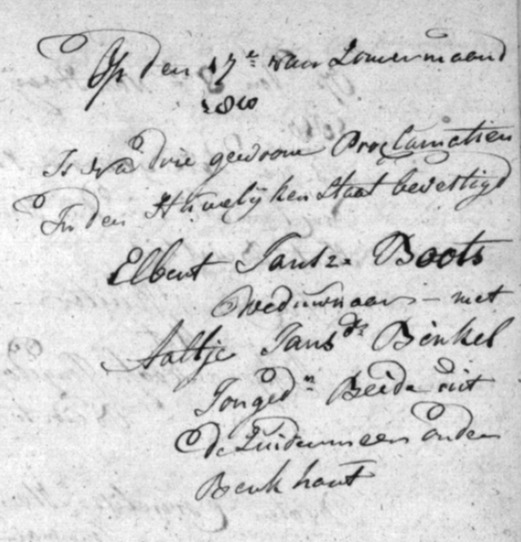 Op den 17e van Louwmaand
1810
Is na drie gewoone Proclamatien
In den Huwelijken Staat bevestigd
Elbert Jantz Boots
Weduwnaar – met
Aaltje Jansdr Binkel
Jongedn Beide uit
de Zuidermeer onder
Berkhout